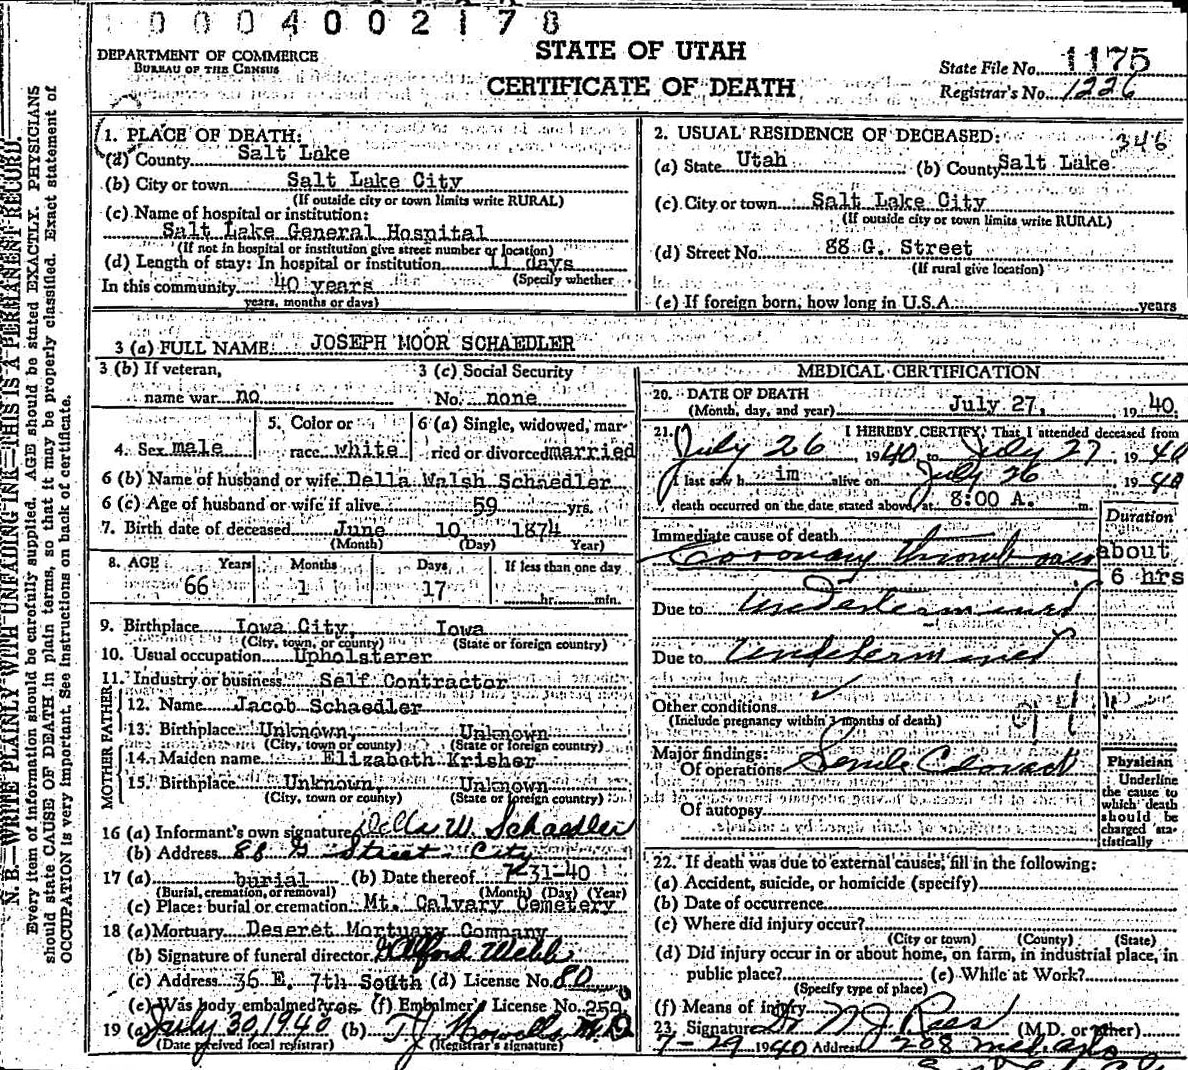 0004002178
DEPARTMENT OF COMMERCE
BUREAU OF THE CENSUS
STATE OF UTAH
CERTIFICATE OF DEATH
State File No. 1175
Registrar's No. 1226
N. B.—WRITE PLAINLY WITH UNFADING INK—THIS IS A PERMANENT RECORD.
Every item of information should be carefully supplied. AGE should be stated EXACTLY. PHYSICIANS
should state CAUSE OF DEATH in plain terms, so that it may be properly classified. Exact statement of
OCCUPATION is very important. See instructions on back of certificate.
1. PLACE OF DEATH:
(a) County Salt Lake
(b) City or town Salt Lake City
(If outside city or town limits write RURAL)
(c) Name of hospital or institution:
Salt Lake General Hospital
(If not in hospital or institution give street number or location)
(d) Length of stay: In hospital or institution 11 days
(Specify whether
In this community 40 years
years, months or days)
2. USUAL RESIDENCE OF DECEASED: 346
(a) State Utah (b) County Salt Lake
(c) City or town Salt Lake City
(If outside city or town limits write RURAL)
(d) Street No. 88 G. Street
(If rural give location)
(e) If foreign born, how long in U.S.A. years
3 (a) FULL NAME: JOSEPH MOOR SCHAEDLER
3 (b) If veteran,
name war no
3 (c) Social Security
No. none
4. Sex male
5. Color or
race white
6 (a) Single, widowed, mar-
ried or divorced married
6 (b) Name of husband or wife Della Walsh Schaedler
6 (c) Age of husband or wife if alive 59 yrs.
7. Birth date of deceased June 10 1874
(Month) (Day) Year)
8. AGE Years Months Days If less than one day
66 1 17 hr. min.
9. Birthplace Iowa City, Iowa
(City, town, or county) (State or foreign country)
10. Usual occupation Upholsterer
11. Industry or business Self Contractor
FATHER
12. Name Jacob Schaedler
13. Birthplace Unknown, Unknown
(City, town or county) (State or foreign country)
MOTHER
14. Maiden name Elizabeth Krisher
15. Birthplace Unknown, Unknown
(City, town or county) (State or foreign country)
16 (a) Informant's own signature Della W. Schaedler
(b) Address 88 G Street City
17 (a) burial (b) Date thereof 7-31-40
(Burial, cremation, or removal) (Month) (Day) (Year)
(c) Place: burial or cremation Mt. Calvary Cemetery
18 (a) Mortuary Deseret Mortuary Company
(b) Signature of funeral director Alford Webb
(c) Address 36 E. 7th South (d) License No. 80
(e) Was body embalmed? yes (f) Embalmer's License No. 250
19 (a) July 30, 1940 (b) T.J. Howells M.D.
(Date received local registrar) (Registrar's signature)
MEDICAL CERTIFICATION
20. DATE OF DEATH
(Month, day, and year) July 27, 1940.
21. I HEREBY CERTIFY, That I attended deceased from
July 26 1940 to July 27 1940
I last saw h im alive on July 26 1940
death occurred on the date stated above, at 8:00 A. m.
Duration
Immediate cause of death
Coronary thrombosis about
6 hrs
Due to undetermined
Due to undetermined
Other conditions
(Include pregnancy within 3 months of death) 94
Major findings:
Of operations Senile Cataract
Of autopsy
Physician
Underline
the cause to
which death
should be
charged sta-
tistically
22. If death was due to external causes, fill in the following:
(a) Accident, suicide, or homicide (specify)
(b) Date of occurrence
(c) Where did injury occur?
(City or town) (County) (State)
(d) Did injury occur in or about home, on farm, in industrial place, in
public place? (e) While at Work?
(Specify type of place)
(f) Means of injury
23. Signature M J Rees (M.D. or other)
7-29 1940 Address 208